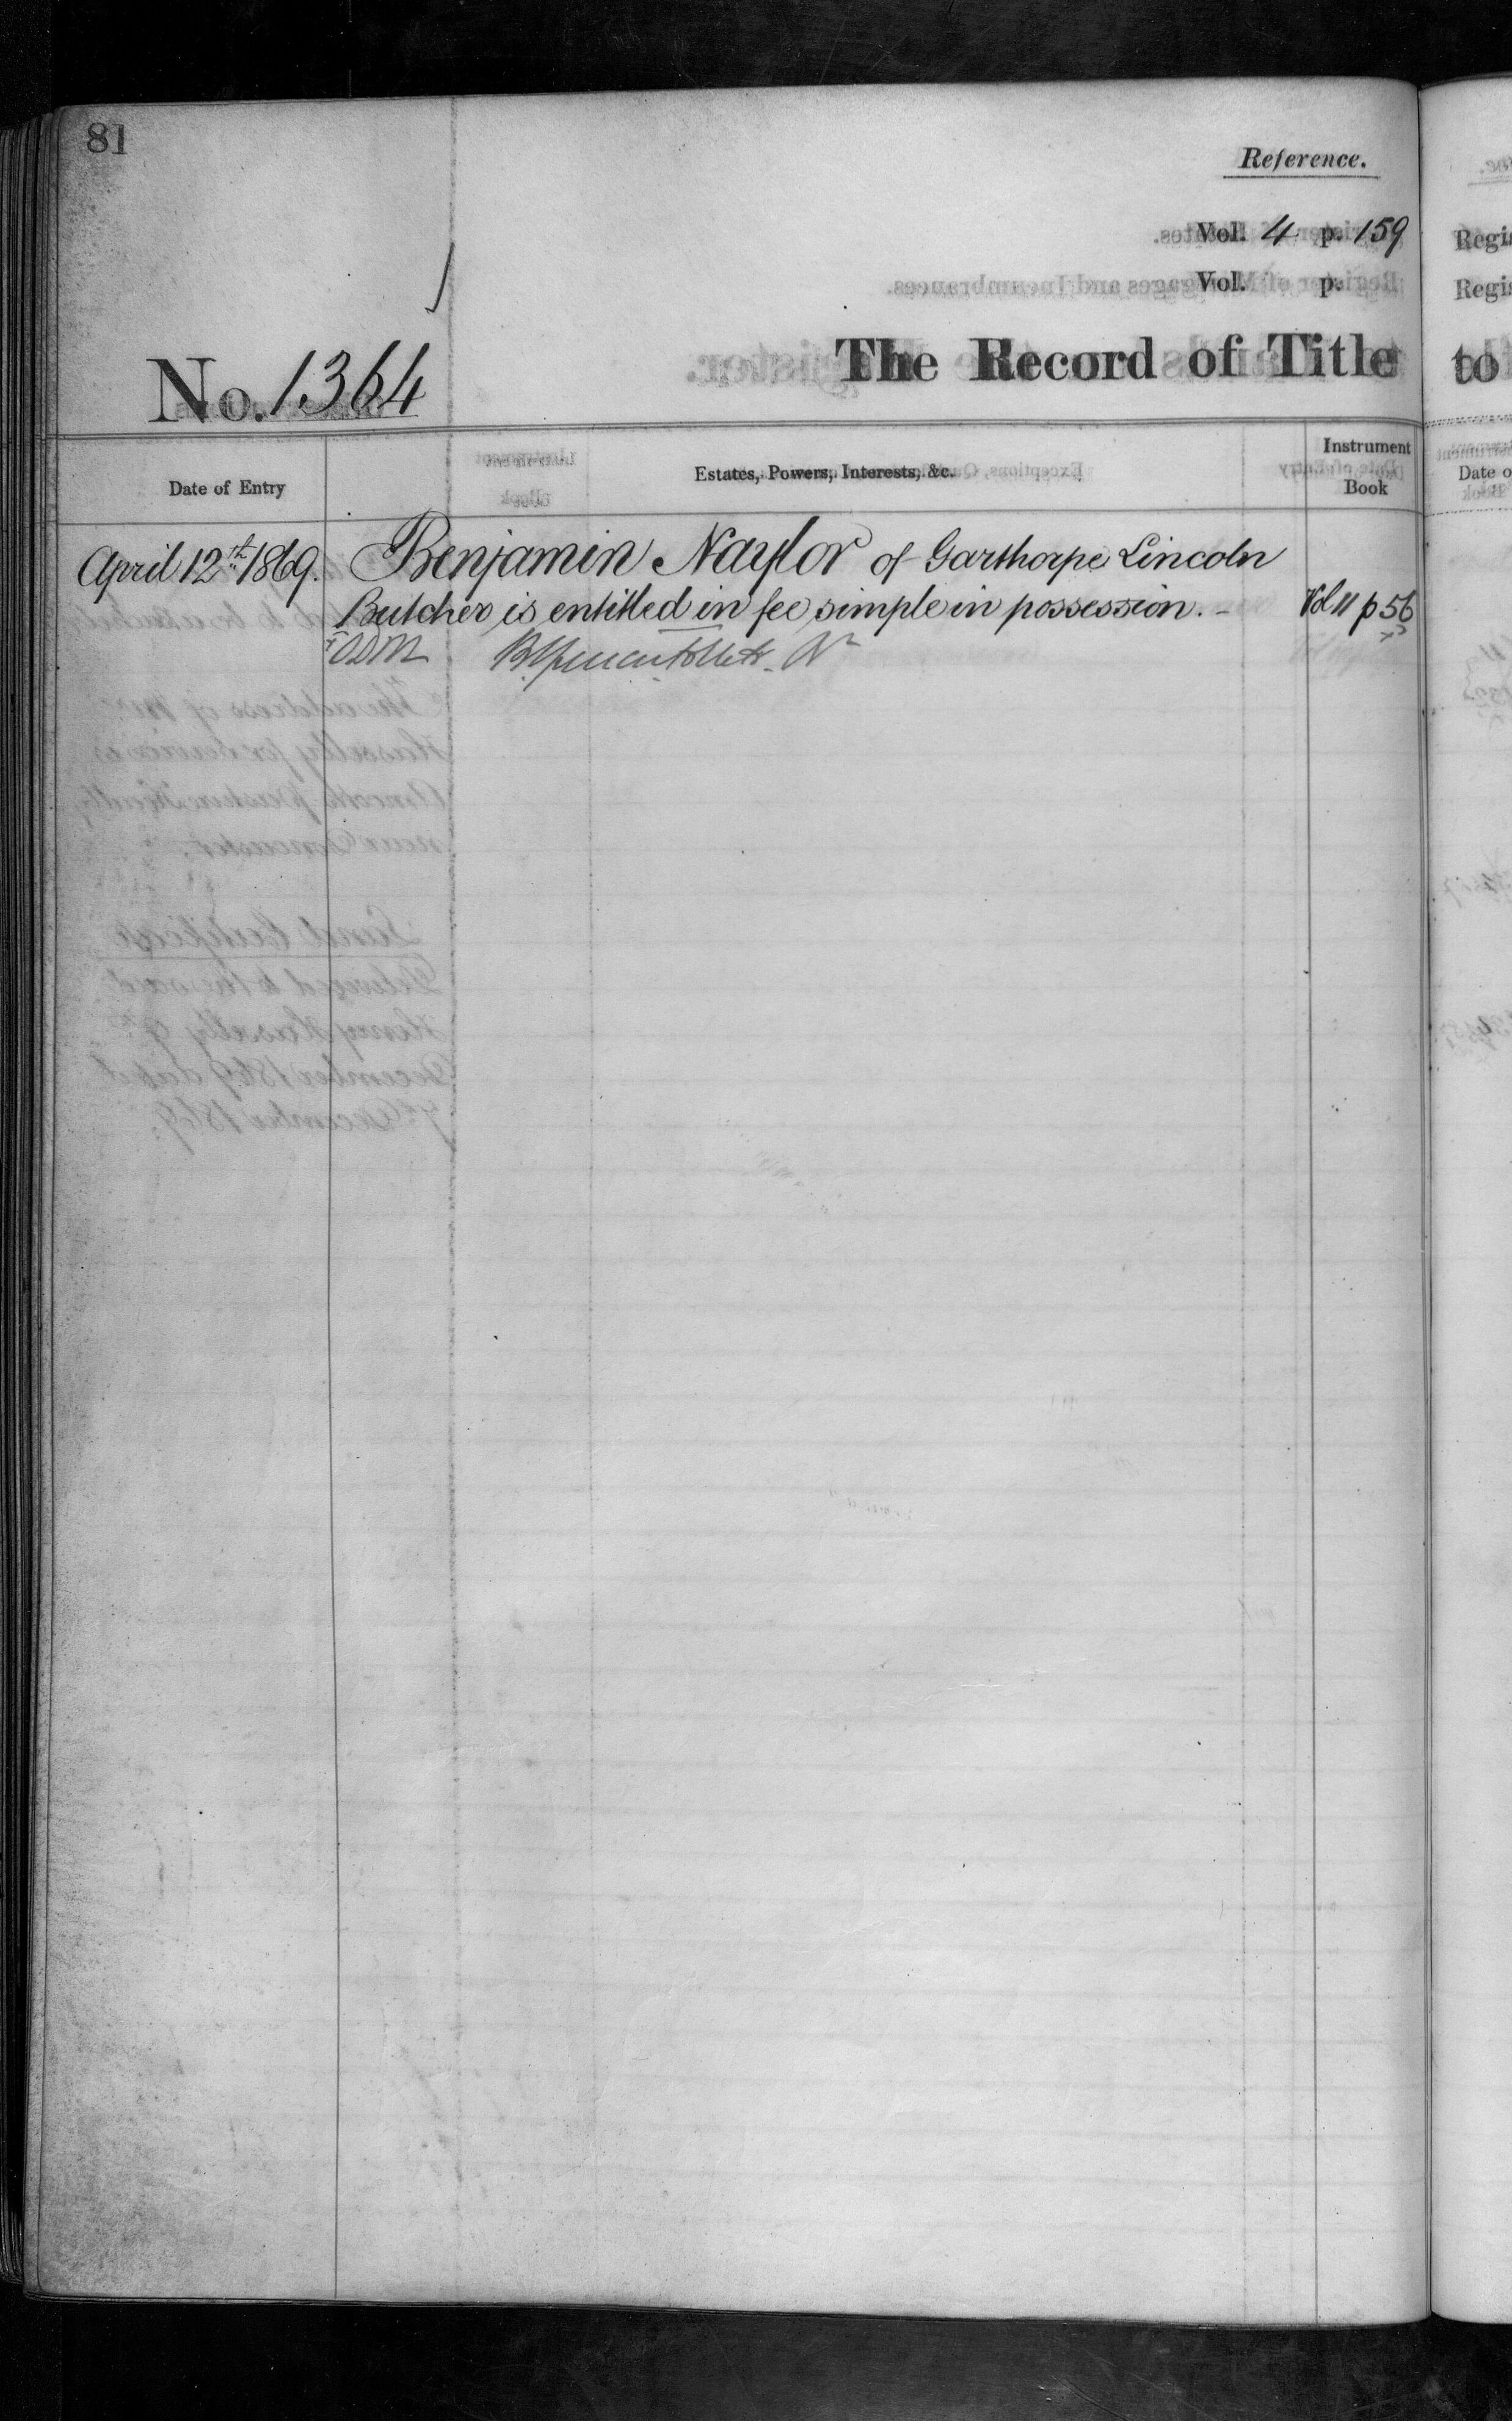 81
Reference.
Vol. 4 p. 159
Vol. p.
No. 1364
The Record of Title
Date of Entry
Estates, Powers, Interests, &c.
Instrument Book
April 12th 1869.
Benjamin Naylor of Garthorpe Lincoln
Butcher is entitled in fee simple in possession. -
Vol 11 p 56
Regis
Regis
to
Date o